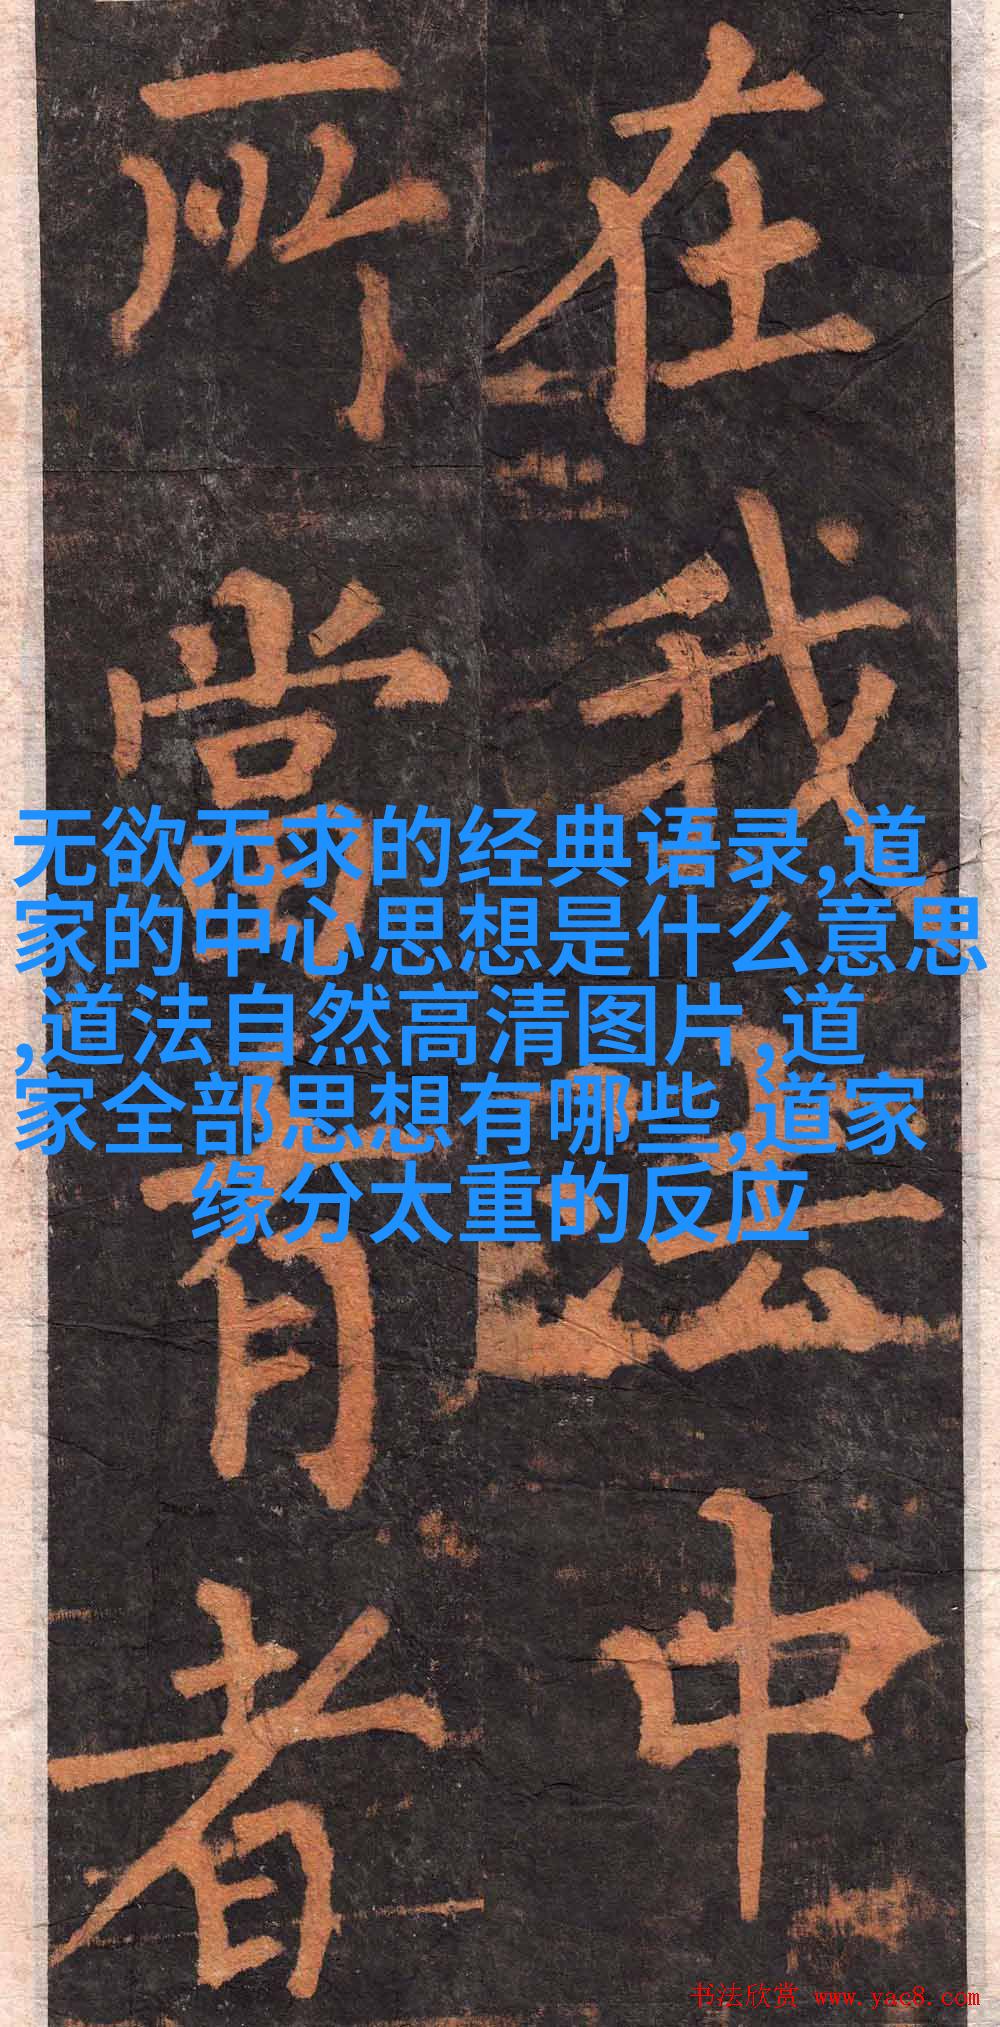 在我法中
所当有者
无欲无求的经典语录,道
家的中心思想是什么意思
,道法自然高清图片,道
家全部思想有哪些,道家
缘分太重的反应
书法欣赏 www.yac8.com